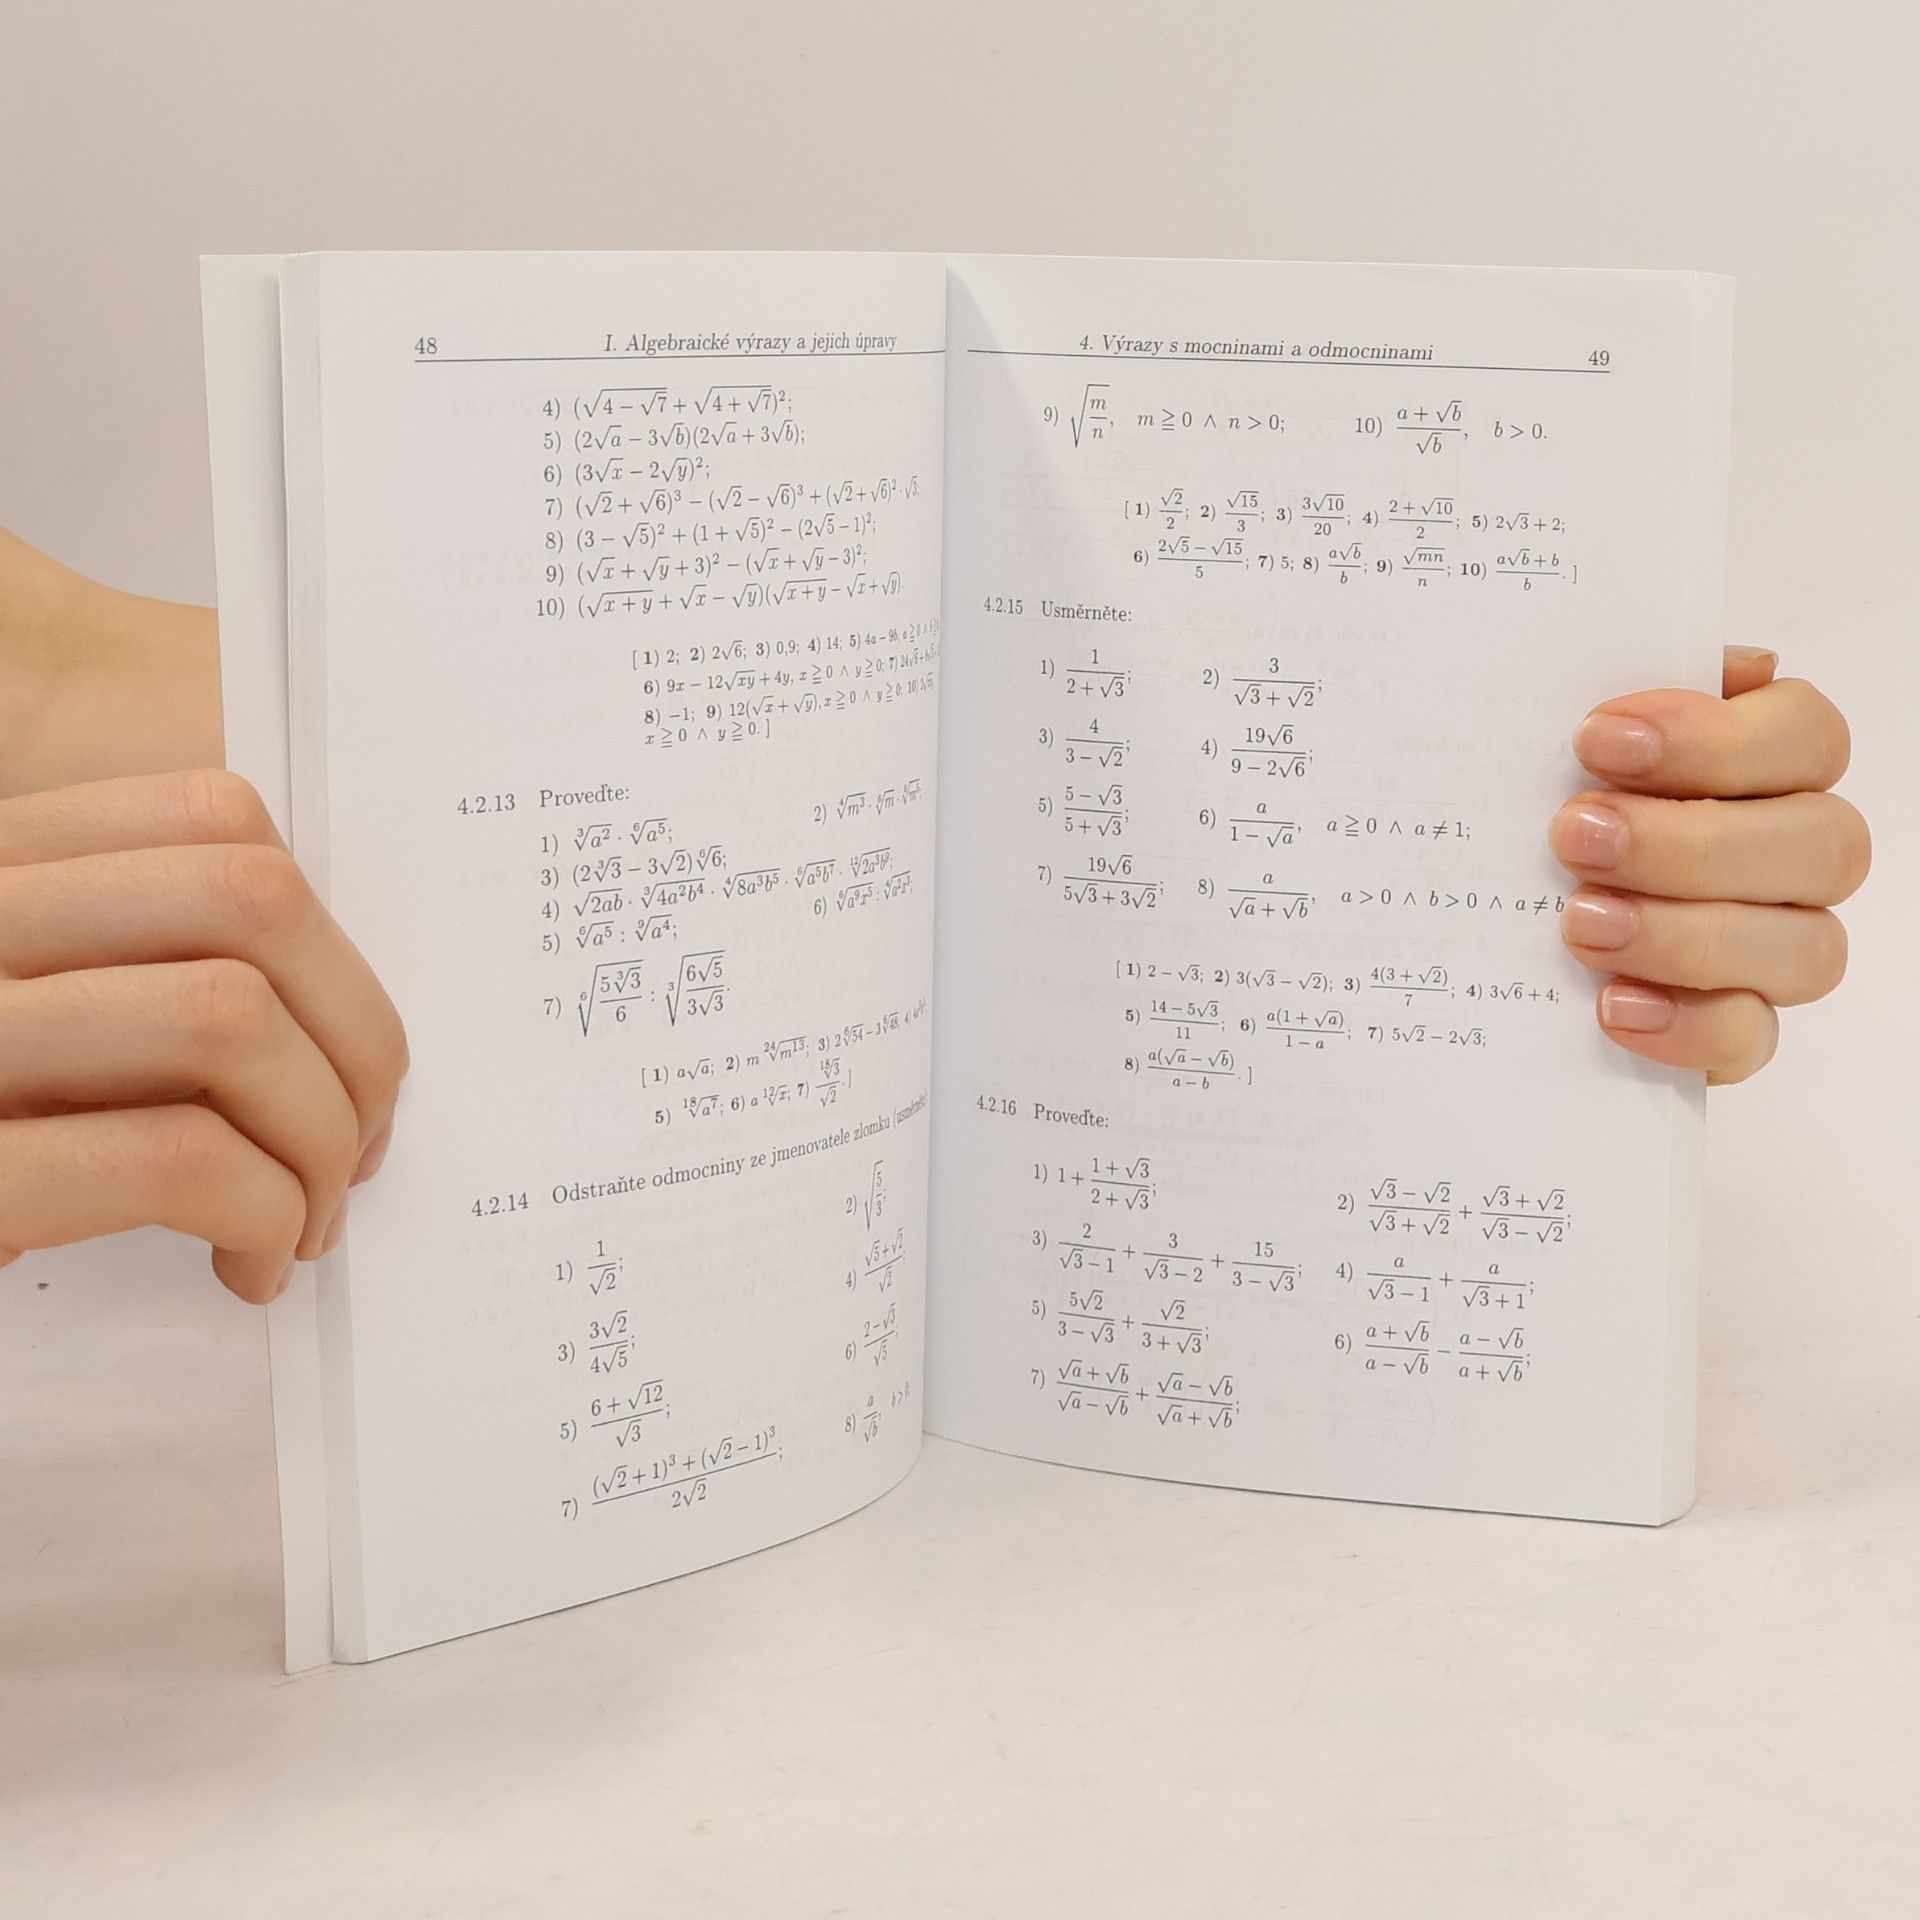 48 I. Algebraické výrazy a jejich úpravy
4) (√(4 − √7) + √(4 + √7))²;
5) (2√a − 3√b)(2√a + 3√b);
6) (3√x − 2√y)²;
7) (√2 + √6)³ − (√2 − √6)³ + (√2 + √6)² · √3;
8) (3 − √5)² + (1 + √5)² − (2√5 − 1)²;
9) (√x + √y + 3)² − (√x + √y − 3)²;
10) (√(x + y) + √x − √y)(√(x + y) − √x + √y).
[ 1) 2; 2) 2√6; 3) 0,9; 4) 14; 5) 4a − 9b, a ≧ 0 ∧
6) 9x − 12√(xy) + 4y, x ≧ 0 ∧ y ≧ 0; 7)
8) −1; 9) 12(√x + √y), x ≧ 0 ∧ y ≧ 0; 10)
x ≧ 0 ∧ y ≧ 0. ]
4.2.13 Proveďte:
1) ∛(a²) · ⁶√(a⁵); 2) ⁴√(m³) · ⁶√m · ⁸√(m⁵);
3) (2∛3 − 3√2)⁶√6;
4) √(2ab) · ∛(4a²b⁴) · ⁴√(8a³b⁵) · ⁶√(a⁵b⁷) · ¹²√(2a³b⁹);
5) ⁶√(a⁵) : ⁹√(a⁴); 6)
7) ⁶√(5∛3/6) : ∛(6√5/(3√3)).
[ 1) a√a; 2) m ²⁴√(m¹³); 3) 2⁶√54 − 3⁶√48; 4)
5) ¹⁸√(a⁷); 6) a ¹²√x; 7) ¹⁸√3/√2. ]
4.2.14 Odstraňte odmocniny ze jmenovatele zlomku (usměrněte)
1) 1/√2; 2) √(5/3);
3) 3√2/(4√5); 4) (√5 + √2)/√2;
5) (6 + √12)/√3; 6) (2 − √3)/√5;
7) ((√2 + 1)³ + (√2 − 1)³)/(2√2); 8) a/√b, b > 0;
4. Výrazy s mocninami a odmocninami 49
9) √(m/n), m ≧ 0 ∧ n > 0; 10) (a + √b)/√b, b > 0.
[ 1) √2/2; 2) √15/3; 3) 3√10/20; 4) (2 + √10)/2; 5) 2√3 + 2;
6) (2√5 − √15)/5; 7) 5; 8) a√b/b; 9) √(mn)/n; 10) (a√b + b)/b. ]
4.2.15 Usměrněte:
1) 1/(2 + √3); 2) 3/(√3 + √2);
3) 4/(3 − √2); 4) 19√6/(9 − 2√6);
5) (5 − √3)/(5 + √3); 6) a/(1 − √a), a ≧ 0 ∧ a ≠ 1;
7) 19√6/(5√3 + 3√2); 8) a/(√a + √b), a > 0 ∧ b > 0 ∧ a ≠ b
[ 1) 2 − √3; 2) 3(√3 − √2); 3) 4(3 + √2)/7; 4) 3√6 + 4;
5) (14 − 5√3)/11; 6) a(1 + √a)/(1 − a); 7) 5√2 − 2√3;
8) a(√a − √b)/(a − b). ]
4.2.16 Proveďte:
1) 1 + (1 + √3)/(2 + √3); 2) (√3 − √2)/(√3 + √2) + (√3 + √2)/(√3 − √2);
3) 2/(√3 − 1) + 3/(√3 − 2) + 15/(3 − √3); 4) a/(√3 − 1) + a/(√3 + 1);
5) 5√2/(3 − √3) + √2/(3 + √3); 6) (a + √b)/(a − √b) − (a − √b)/(a + √b);
7) (√a + √b)/(√a − √b) + (√a − √b)/(√a + √b);